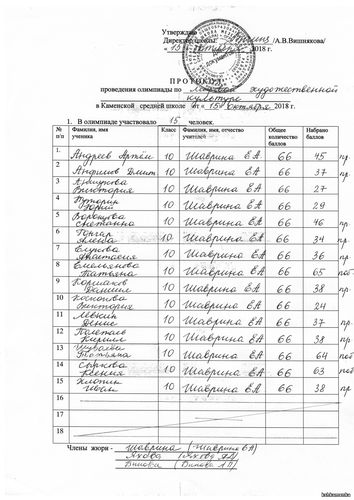 Утверждаю
Директор школы /А.В.Вишнякова/
« 15 » октября 2018 г.
ПРОТОКОЛ
проведения олимпиады по мировой художественной
культуре
в Каменской средней школе от « 15 » октября 2018 г.
1. В олимпиаде участвовало 15 человек.
№ п/п Фамилия, имя ученика Класс Фамилия, имя, отчество учителя Общее количество баллов Набрано баллов
1. Андреев Артём 10 Шаврина ЕА 66 45 пр
2 Анфилов Дмит 10 Шаврина ЕА 66 37 пр.
3 Виктория 10 Шаврина ЕА 66 27
4 Юрий 10 Шаврина ЕА 66 29
5 Воронцова Светлана 10 Шаврина ЕА 66 46 пр.
6 Горгар 10 Шаврина ЕА 66 34 пр.
7 Елисова Анастасия 10 Шаврина ЕА 66 36 пр
8 Емельянова Татьяна 10 Шаврина ЕА 66 65 поб
9 Даниил 10 Шаврина ЕА 66 38 пр.
10 Виктория 10 Шаврина ЕА 66 24
11 Лёвкин Денис 10 Шаврина ЕА 66 37 пр.
12 Полетаев Кирилл 10 Шаврина ЕА 66 38 пр.
13 Шуваева Татьяна 10 Шаврина ЕА 66 64 поб
14 Сырцева Ксения 10 Шаврина ЕА 66 63 поб
15 Хлопин Иван 10 Шаврина ЕА 66 38 пр
16
17
18
Члены жюри - Шаврина (Шаврина ЕА)